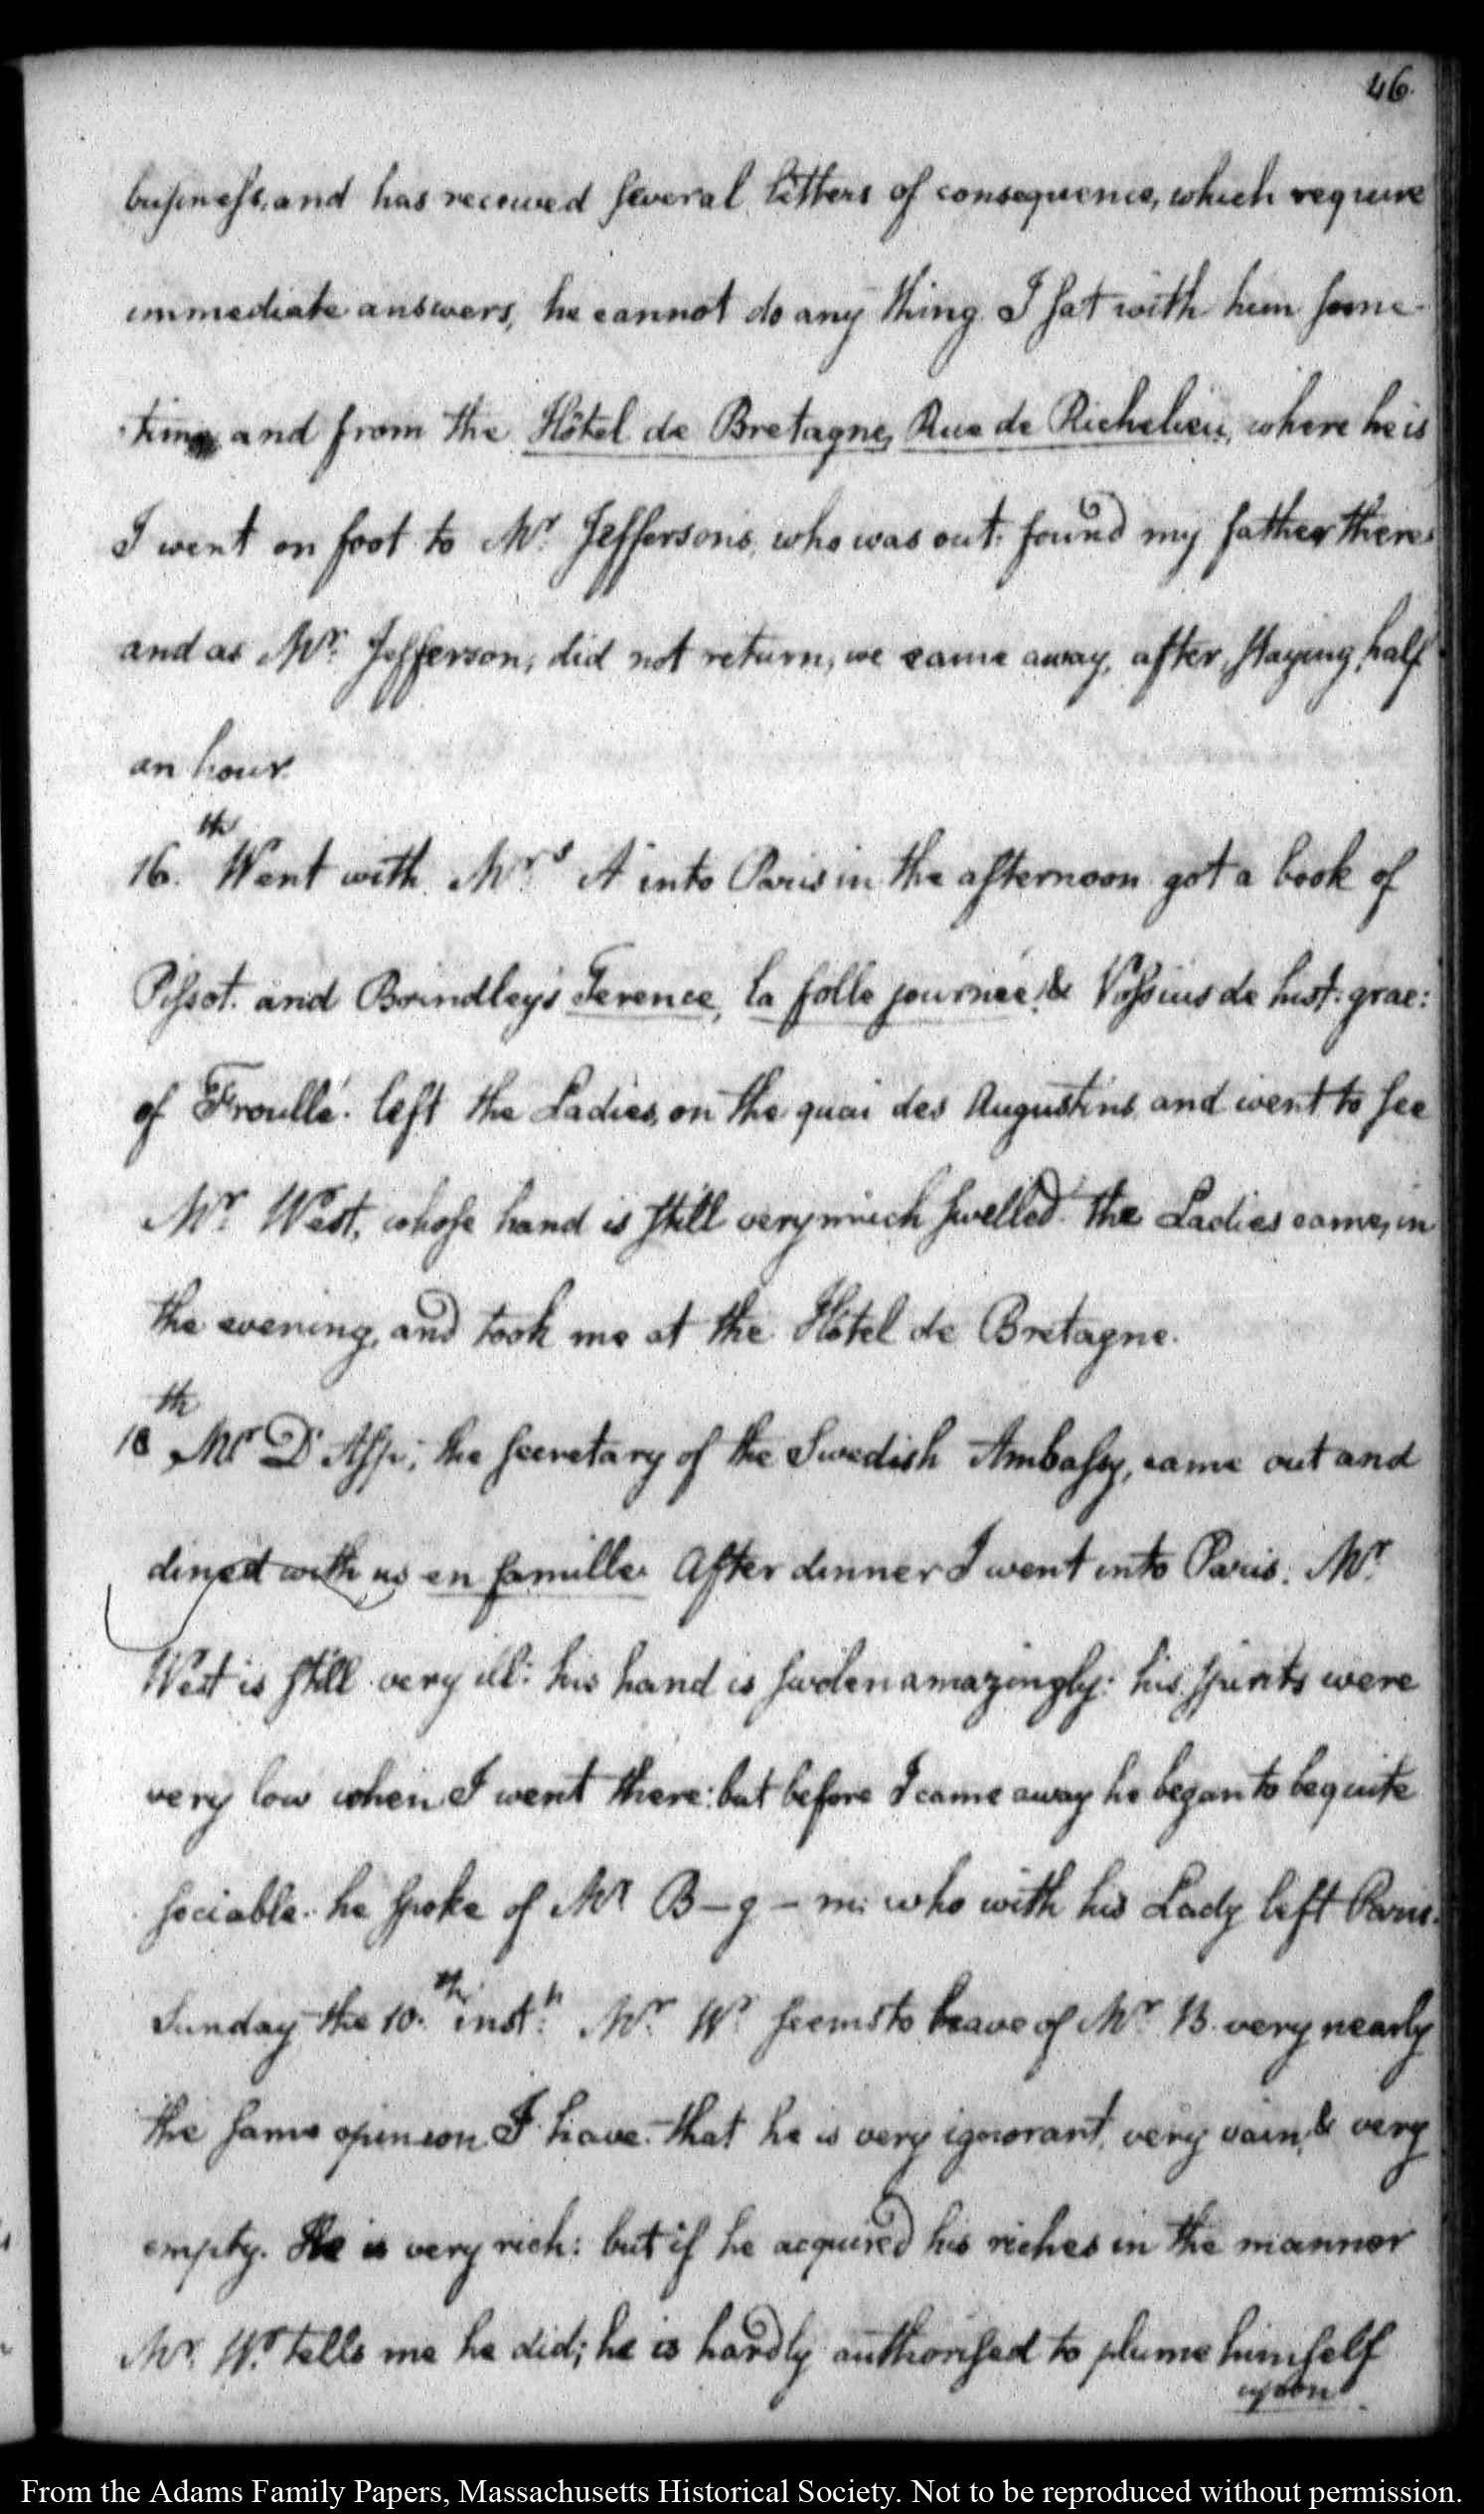 46.
business, and has received several letters of consequence, which require
immediate answers, he cannot do any thing. I sat with him some-
time, and from the Hôtel de Bretagne, Rue de Richelieu, where he is
I went on foot to Mr. Jeffersons, who was out. found my father there
and as Mr. Jefferson, did not return, we came away, after staying, half
an hour.
16.th Went with Mrs. A into Paris in the afternoon got a book of
Pissot. and Brindley's Terence, la folle journée, & Vossius de hist: grae:
of Froullé. left the Ladies, on the quai des Augustins, and went to see
Mr. West, whose hand is still very much swelled. the Ladies came, in
the evening, and took me at the Hôtel de Bretagne.
18th Mr. D'Asp; the secretary of the Swedish Ambassy, came out and
dined with us en famille. After dinner I went into Paris. Mr.
West is still very ill: his hand is swolen amazingly: his spirits were
very low when I went there: but before I came away he began to be quite
sociable. he spoke of Mr. B—g—m: who with his Lady left Paris.
Sunday the 10.th inst: Mr. W. seems to have of Mr. B. very nearly
the same opinion I have. that he is very ignorant, very vain, & very
empty. He is very rich: but if he acquired his riches in the manner
Mr. W. tells me he did; he is hardly authorised to plume himself
upon
From the Adams Family Papers, Massachusetts Historical Society. Not to be reproduced without permission.